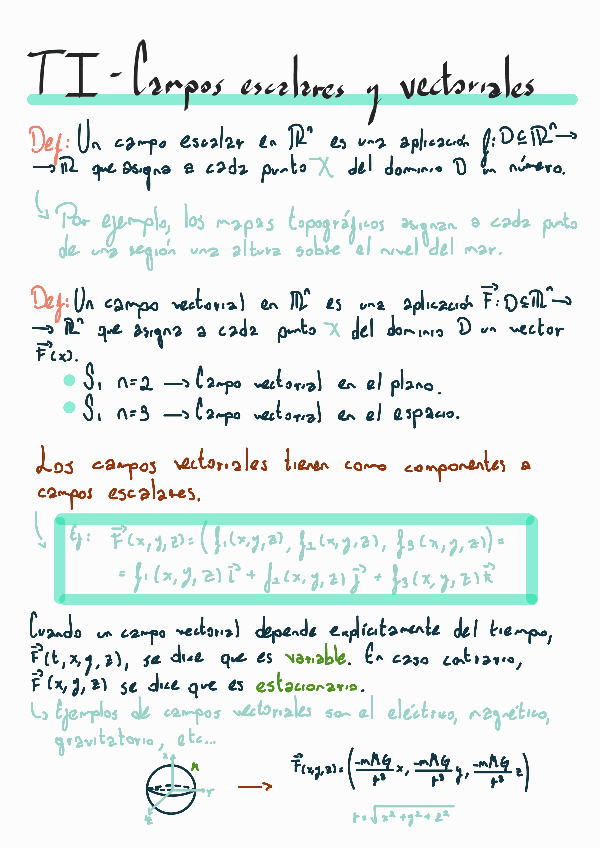 TI - Campos escalares y vectoriales
Def: Un campo escalar en ℝⁿ es una aplicación f: D⊆ℝⁿ→
→ℝ que asigna a cada punto X del dominio D un número.
↳ Por ejemplo, los mapas topográficos asignan a cada punto
de una región una altura sobre el nivel del mar.
Def: Un campo vectorial en ℝⁿ es una aplicación F⃗: D⊆ℝⁿ→
→ℝⁿ que asigna a cada punto X del dominio D un vector
F⃗(x).
• Si n=2 → Campo vectorial en el plano.
• Si n=3 → Campo vectorial en el espacio.
Los campos vectoriales tienen como componentes a
campos escalares.
↳ Ej: F⃗(x,y,z) = (f₁(x,y,z), f₂(x,y,z), f₃(x,y,z)) =
= f₁(x,y,z) i⃗ + f₂(x,y,z) j⃗ + f₃(x,y,z) k⃗
Cuando un campo vectorial depende explícitamente del tiempo,
F⃗(t,x,y,z), se dice que es variable. En caso contrario,
F⃗(x,y,z) se dice que es estacionario.
↳ Ejemplos de campos vectoriales son el eléctrico, magnético,
gravitatorio, etc...
→ F⃗(x,y,z) = (-mMG/r³ x, -mMG/r³ y, -mMG/r³ z)
r=√x²+y²+z²